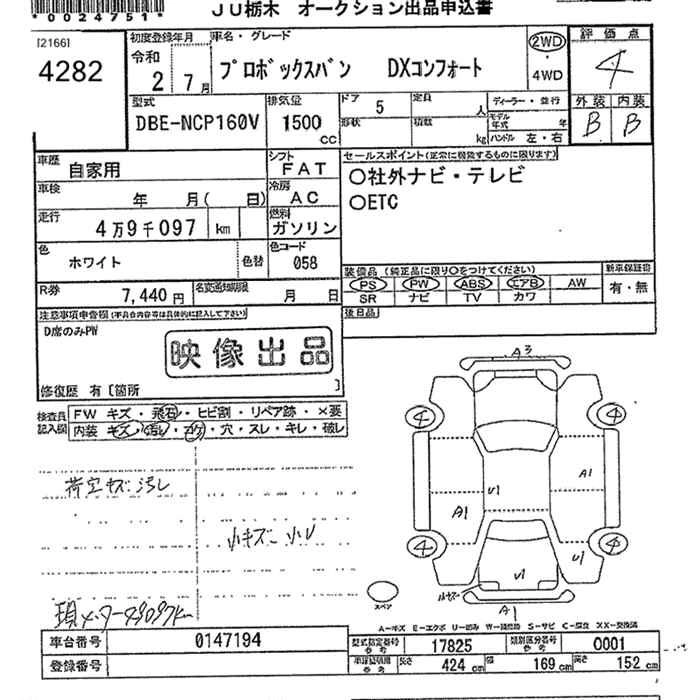 *0024751*
JU栃木 オークション出品申込書
[2166]
4282
初度登録年月
令和
2
7月
車名・グレード
プロボックスバン DXコンフォート
2WD
・
4WD
評価点
4
型式
DBE-NCP160V
排気量
1500
cc
ドア
5
形状
定員
人
積数
kg
ディーラー・並行
モデル年式
年
ハンドル 左・右
外装 内装
B B
車歴
自家用
シフト
FAT
車検
年 月( 日)
冷房
AC
走行
4万9千097 km
燃料
ガソリン
色
ホワイト
色替
色コード
058
R券
7,440円
名変通知期限
月 日
セールスポイント(正常に機能するものに限ります)
○社外ナビ・テレビ
○ETC
装備品(純正品に限り○をつけてください)
PS PW ABS エアB AW
SR ナビ TV カワ
新車保証書
有・無
後日品
注意事項申告欄(不具合内容等は具体的に記入して下さい)
D席のみPW
映像出品
修復歴 有〔箇所 〕
検査員記入欄
FW キズ・飛石・ヒビ割・リペア跡・×要
内装 キズ・汚れ・コゲ・穴・スレ・キレ・破レ
荷室キズ汚レ
小キズ 小U
現メーター49097km
A3
4 4
A1
U1
A1
4 4
U1
U1
A1
スペア
A-キズ E-エクボ U-凹み W-補修跡 S-サビ C-腐食 XX-交換済
車台番号
0147194
登録番号
型式指定番号
参考
17825
類別区分番号
参考
0001
車検証明細
参考
長さ 424 cm
幅 169 cm
高さ 152 cm